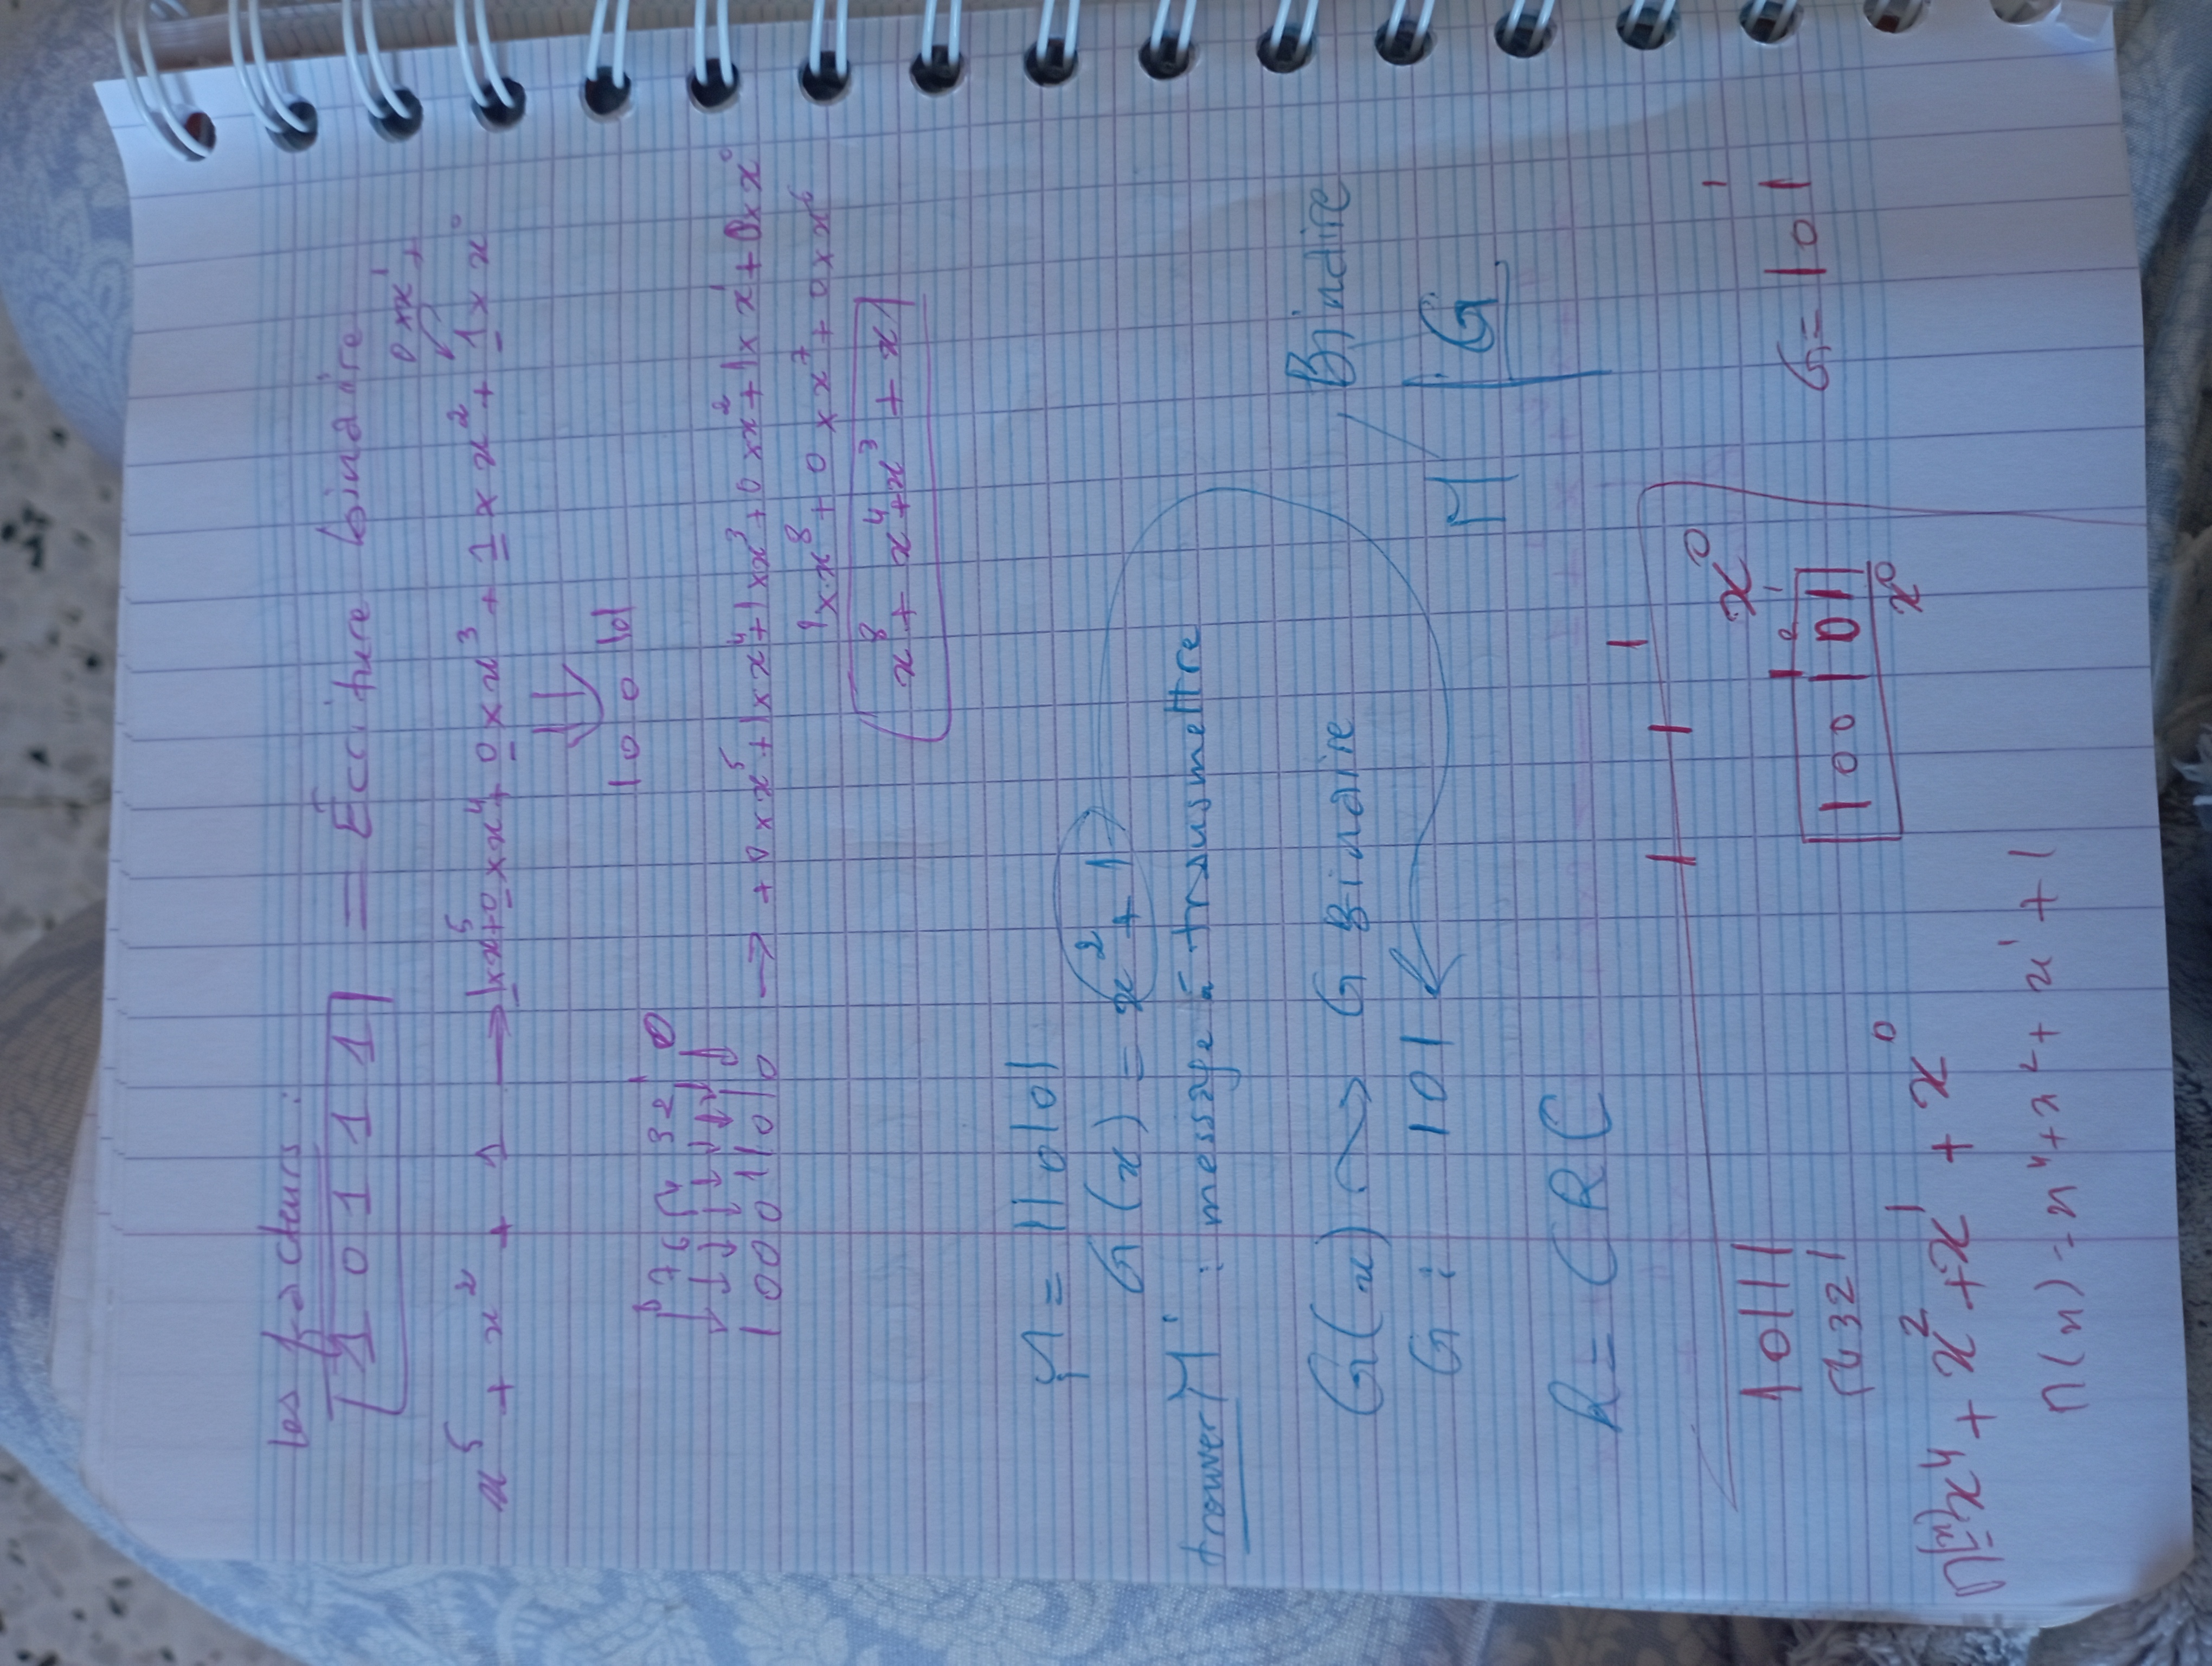 les facteurs :
1 0 1 1 1 = Écriture binaire
0 × x¹ +
x⁵ + x² + 1 → 1 × x⁵ + 0 × x⁴ + 0 × x³ + 1 × x² + 1 × x⁰
1 0 0 1 0 1
8 7 6 5 4 3 2 1 0
1 0 0 0 1 1 0 1 0 → + 0 × x⁵ + 1 × x⁴ + 1 × x³ + 0 × x² + 1 × x¹ + 0 × x⁰
1 × x⁸ + 0 × x⁷ + 0 × x⁶
x⁸ + x⁴ + x³ + x
M = 110101
G(x) = x² + 1
trouver M' : message à transmettre
G(x) → G Binaire
Binaire
G : 101
M | G
R = CRC
1 1 1
x⁰
10111
G = 101
1
54321
100101
x⁰
M(x) = x⁴ + x² + x¹ + x⁰
M(x) = x⁴ + x² + x¹ + 1